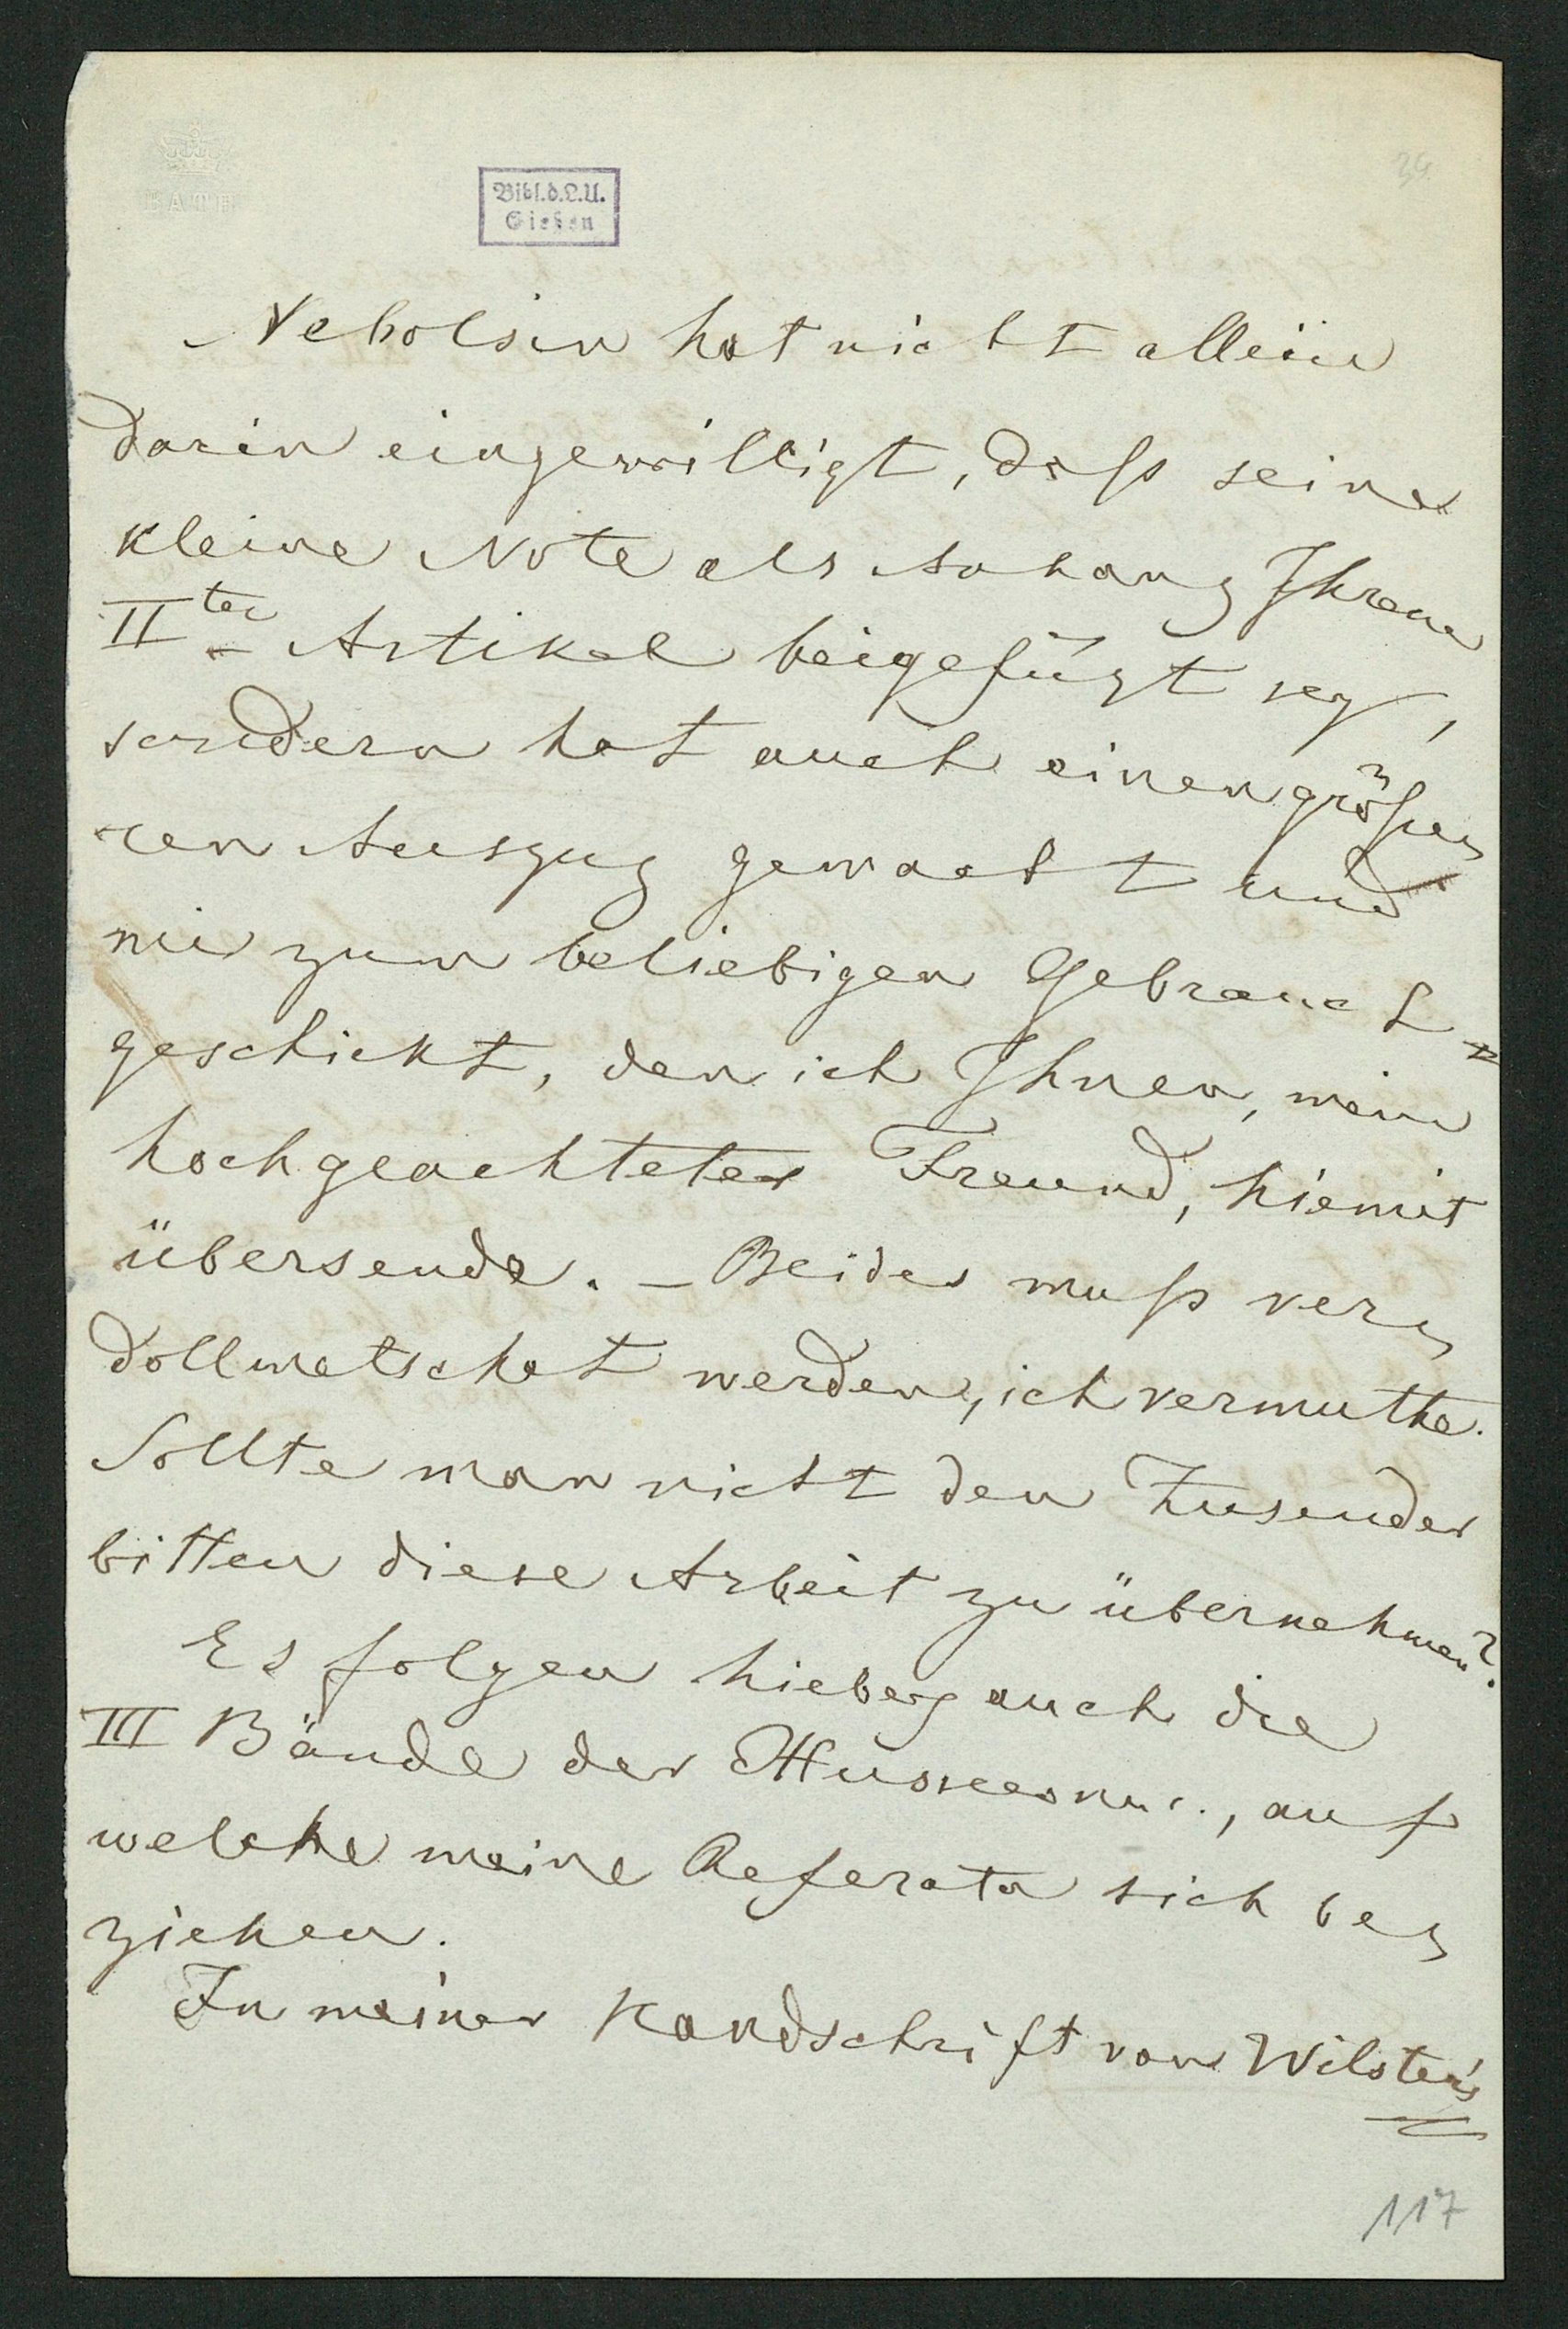 BATH
Bibl.d.L.U.
Gießen
34
Nebolsin hat nicht allein
darin eingewilligt, daß seine
kleine Note als Anhang Ihrem
IIten Artikel beigefügt sey,
sondern hat auch einen größe-
ren Auszug gemacht und
mir zum beliebigen Gebrauch
geschickt, den ich Ihnen, mein
hochgeachteter Freund, hiemit
übersende. – Beides muß ver-
dollmetschet werden, ich vermuthe.
Sollte man nicht den Zusender
bitten diese Arbeit zu übernehmen?
Es folgen hiebey auch die
III Bände der , auf
welche meine Referata sich be-
ziehen.
In meiner Handschrift von Wilster's
117